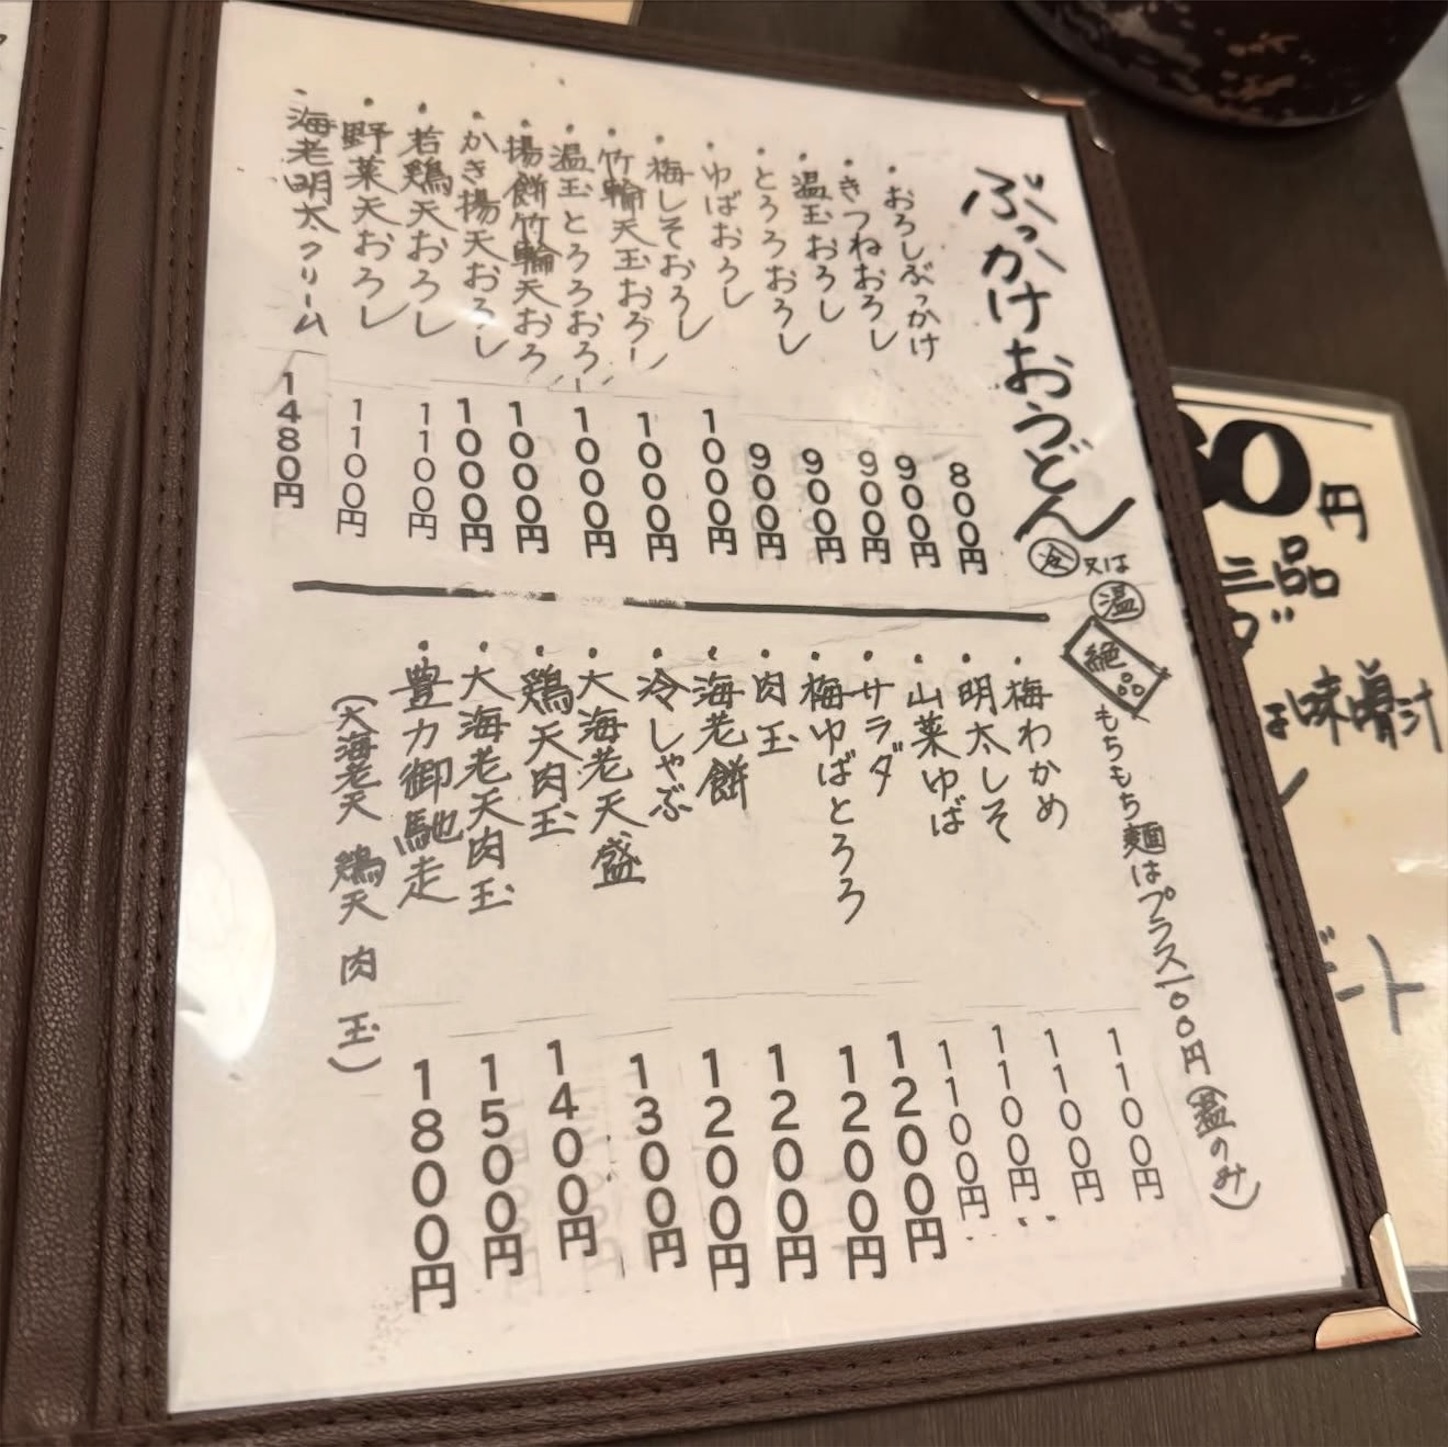 ぶっかけおうどん 冷 又は 温
・おろしぶっかけ 800円
・きつねおろし 900円
・温玉おろし 900円
・とろろおろし 900円
・ゆばおろし 900円
・梅しそおろし 1000円
・竹輪天玉おろし 1000円
・温玉とろろおろし 1000円
・揚餅竹輪天おろし 1000円
・かき揚天おろし 1000円
・若鶏天おろし 1100円
・野菜天おろし 1100円
・海老明太クリーム 1480円
絶品 もちもち麺はプラス100円(温のみ)
・梅わかめ 1100円
・明太しそ 1100円
・山菜ゆば 1100円
・サラダ 1100円
・梅ゆばとろろ 1200円
・肉玉 1200円
・海老餅 1200円
・冷しゃぶ 1200円
・大海老天盛 1300円
・鶏天肉玉 1400円
・大海老天肉玉 1500円
・豊力御馳走 1800円
(大海老天 鶏天 肉玉)
0円
三品
味噌汁